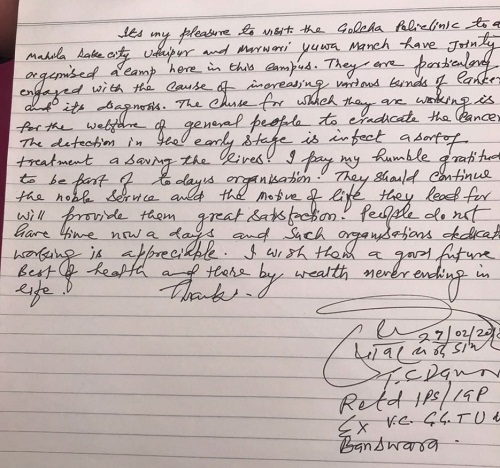 Its my pleasure to visit the Golcha Policlinic to a
Mahila Lake city Udaipur and Marwari Yuwa Manch have Jointly
orgenised a camp here in this campus. They are particularly
engaged with the cause of increasing various kinds of cancer
and its diagnosis. The Cause for which they are working is
for the welfare of general people to eradicate the cancer
The detection in the early stage is infect a sort of
treatment a saving the lives. I pay my humble gratitud
to be part of todays organisation. They should continue
the noble service and the motive of life they lead for
will provide them great satisfaction. People do not
have time now a days and such organisations dedicat
working is appreciable. I wish them a good future
Best of health and there by wealth never ending in
life. Thanks.
27/02/20
T.C
Retd IPS/IGP
Ex V.C. G.G.T.U
Banswara.